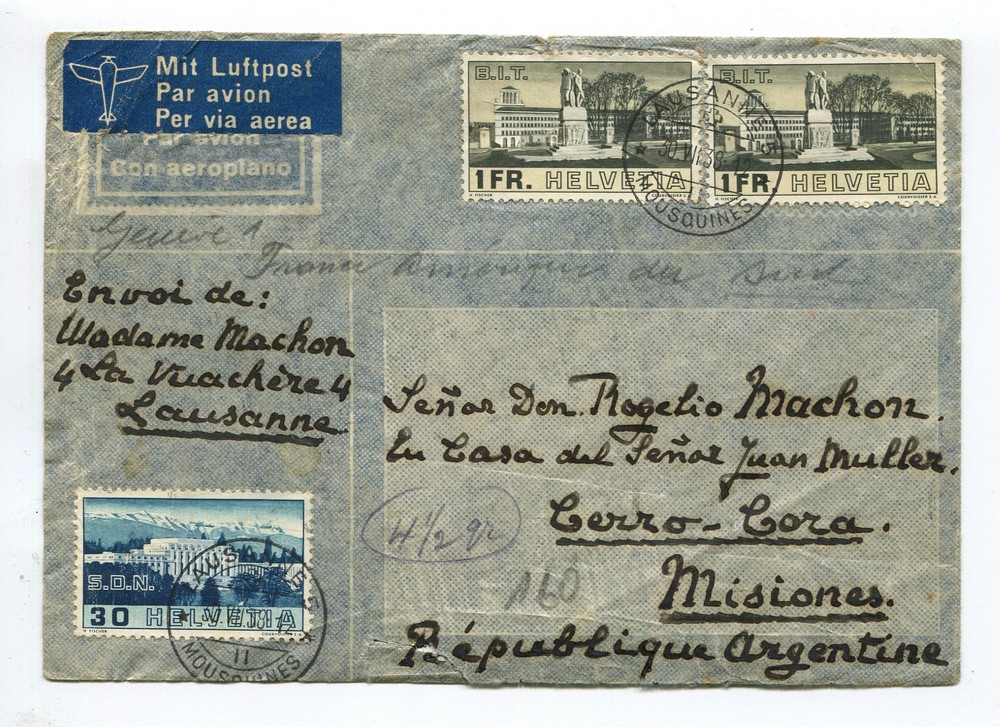 Mit Luftpost
Par avion
Per via aerea
Par avion
Con aeroplano
B.I.T.
1 FR. HELVETIA
H. FISCHER COURVOISIER S.A.
B.I.T.
1 FR. HELVETIA
H. FISCHER COURVOISIER S.A.
LAUSANNE
MOUSQUINES
Genève 1
France Amérique du Sud
Envoi de:
Madame Machon
4 La Vuachère 4
Lausanne
Señor Don. Rogelio Machon.
En Casa del Señor Juan Muller.
Cerro-Cora.
Misiones.
République Argentine
4 1/2 gr
140
S.D.N.
30 HELVETIA
H. FISCHER COURVOISIER S.A.
LAUSANNE
11
MOUSQUINES